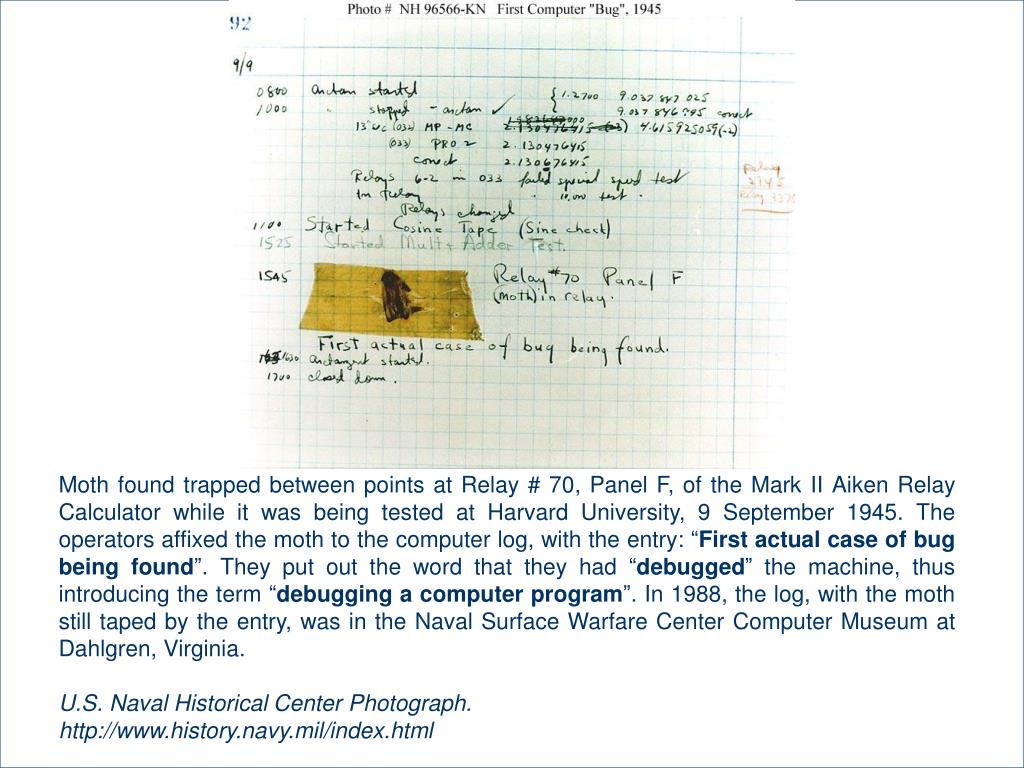 Photo # NH 96566-KN First Computer "Bug", 1945
92
9/9
0800 Antan started { 1.2700 9.037 847 025
1000 " stopped - antan ✓ 9.037 846 995 conect
13"uc (032) MP - MC 2.130476415 (-3) 4.615925059(-2)
(033) PRO 2 2.130476415
conect 2.130676415
Relays 6-2 in 033 failed special speed test
In Relay " 10,000 test.
Relays changed
1100 Started Cosine Tape (Sine check)
1525 Started Mult + Adder Test.
1545 Relay #70 Panel F
(moth) in relay.
First actual case of bug being found.
1630 antangent started.
1700 closed down.
Relay
Relay
Moth found trapped between points at Relay # 70, Panel F, of the Mark II Aiken Relay
Calculator while it was being tested at Harvard University, 9 September 1945. The
operators affixed the moth to the computer log, with the entry: “First actual case of bug
being found”. They put out the word that they had “debugged” the machine, thus
introducing the term “debugging a computer program”. In 1988, the log, with the moth
still taped by the entry, was in the Naval Surface Warfare Center Computer Museum at
Dahlgren, Virginia.
U.S. Naval Historical Center Photograph.
http://www.history.navy.mil/index.html